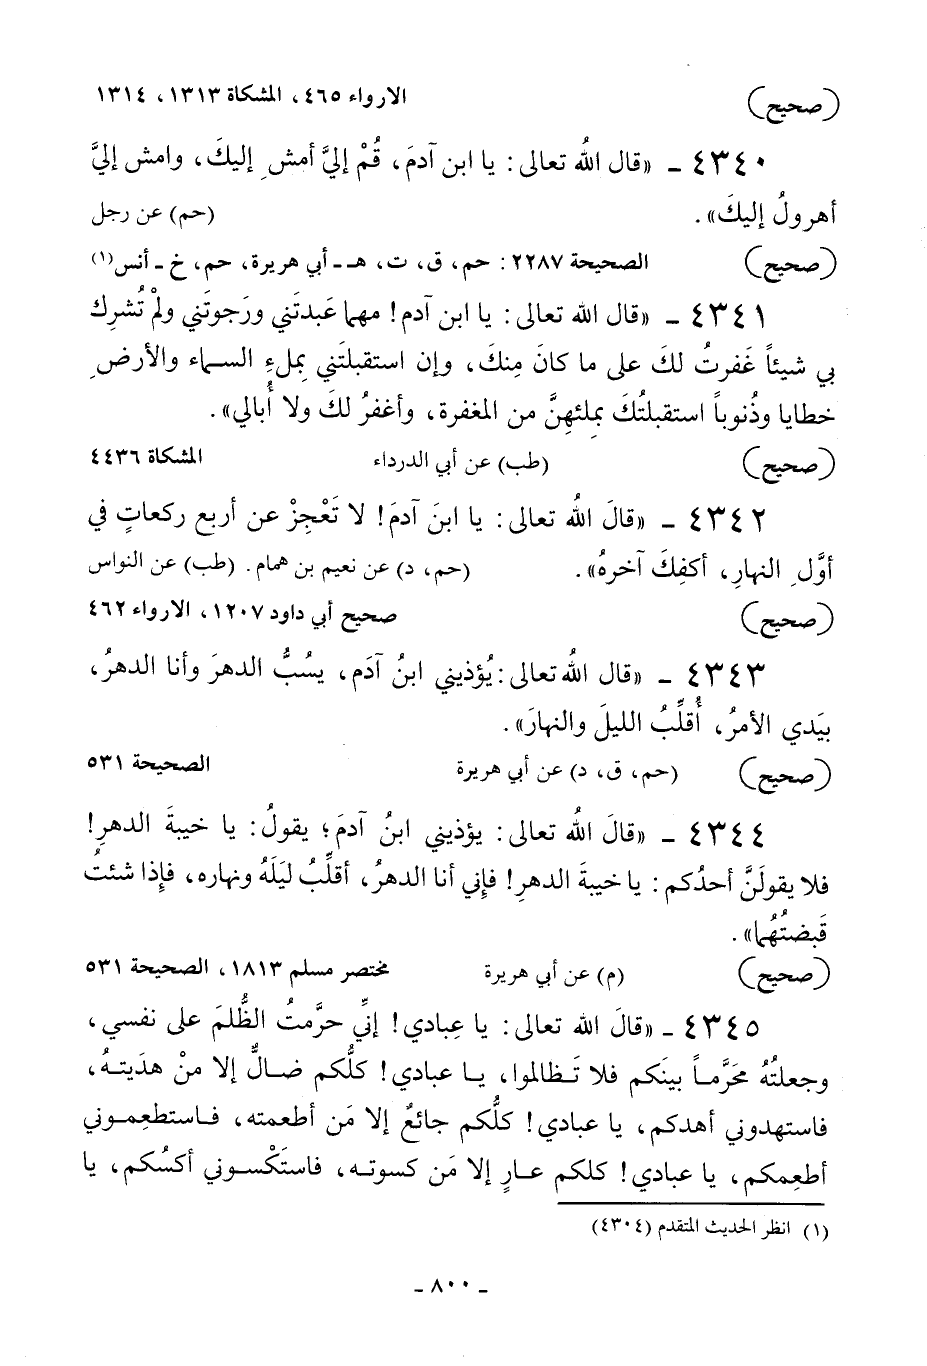 (صحيح) الارواء ٤٦٥، المشكاة ١٣١٣، ١٣١٤
٤٣٤٠ ـ «قال اللهُ تعالى: يا ابن آدمَ، قُمْ إليَّ أمشِ إليكَ، وامش إليَّ
أهرولُ إليكَ». (حم) عن رجل
(صحيح) الصحيحة ٢٢٨٧: حم، ق، ت، هـ ـ أبي هريرة، حم، خ ـ أنس(١)
٤٣٤١ ـ «قال الله تعالى: يا ابن آدم! مهما عَبدتَني ورَجوتَني ولْم تُشرِك
بي شيئاً غَفرتُ لكَ على ما كانَ مِنكَ، وإن استقبلتَني بِملءِ السماء والأرضِ
خطايا وذُنوباً استقبلتُكَ بملئهِنَّ من المغفرة، وأغفرُ لكَ ولا أُبالي».
(صحيح) (طب) عن أبي الدرداء المشكاة ٤٤٣٦
٤٣٤٢ ـ «قالَ اللهُ تعالى: يا ابنَ آدمَ! لا تَعْجِزْ عن أربع ركعاتٍ في
أوَّلِ النهارِ، أكفِكَ آخرهُ». (حم، د) عن نعيم بن همام. (طب) عن النواس
(صحيح) صحيح أبي داود ١٢٠٧، الارواء ٤٦٢
٤٣٤٣ ـ «قال اللهُ تعالى: يُؤذيني ابنُ آدَم، يسُبُّ الدهرَ وأنا الدهرُ،
بيَدي الأمرُ، أُقلِّبُ الليلَ والنهارَ».
(صحيح) (حم، ق، د) عن أبي هريرة الصحيحة ٥٣١
٤٣٤٤ ـ «قالَ اللهُ تعالى: يؤذيني ابنُ آدمَ؛ يقولُ: يا خيبةَ الدهرِ!
فلا يقولَنَّ أحدُكم: يا خيبةَ الدهرِ! فإني أنا الدهرُ، أقلِّبُ ليَلَهُ ونهاره، فإذا شئتُ
قَبضتُهُما».
(صحيح) (م) عن أبي هريرة مختصر مسلم ١٨١٣، الصحيحة ٥٣١
٤٣٤٥ ـ «قالَ الله تعالى: يا عِبادي! إنِّي حرَّمتُ الظُّلمَ على نفسي،
وجعلتُهُ محَرَّماً بينَكم فلا تَظالموا، يا عبادي! كلُّكم ضالٌّ إلا منْ هدَيتهُ،
فاستهدوني أهدكم، يا عبادي! كلُّكم جائعٌ إلا مَن أطعمته، فاستطعِموني
أطعِمكم، يا عبادي! كلكم عارٍ إلا مَن كسوته، فاستَكْسوني أكسُكم، يا
(١) انظر الحديث المتقدم (٤٣٠٤)
ـ ٨٠٠ ـ